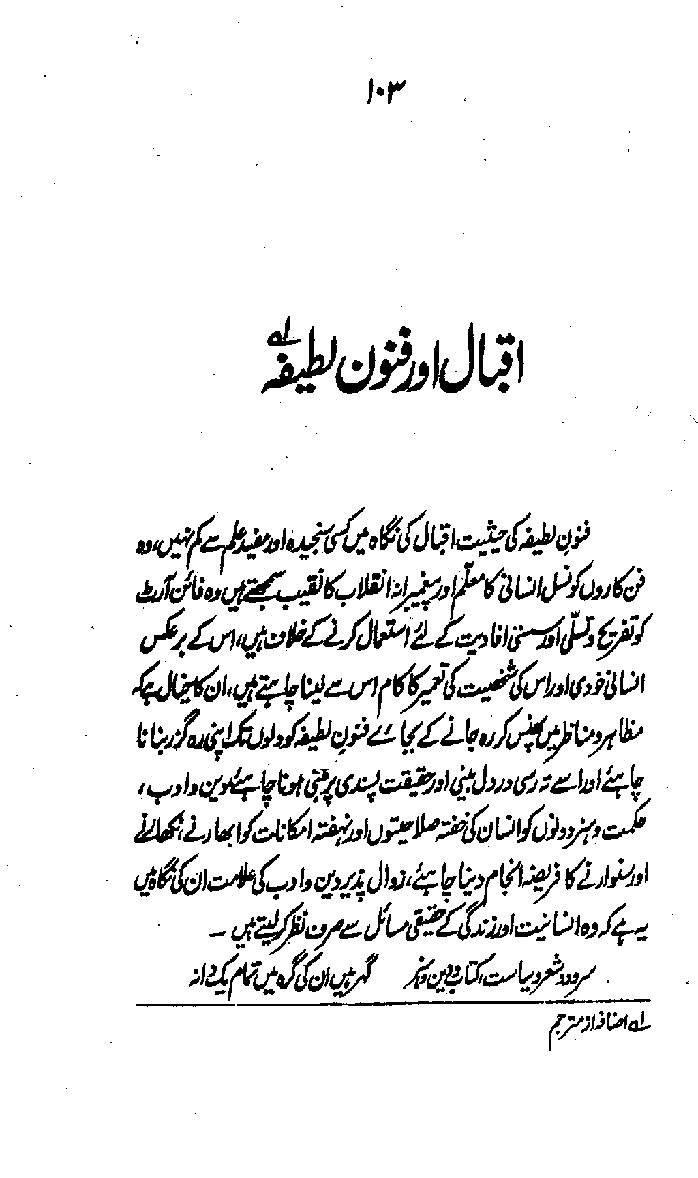 ۱۰۳
اقبال اور فنون لطیفہ لہ
فنونِ لطیفہ کی حیثیت اقبال کی نگاہ میں کسی سنجیدہ اور مفید علم سے کم نہیں، وہ
فن کاروں کو نسل انسانی کا معلّم اور پیغمبرانہ انقلاب کا نقیب سمجھتے ہیں وہ فائن آرٹ
کو تفریح و تسلّی اور سستی افادیت کے لئے استعمال کرنے کے خلاف ہیں، اس کے برعکس
انسانی خودی اور اس کی شخصیت کی تعمیر کا کام اس سے لینا چاہتے ہیں، ان کا خیال ہے کہ
مظاہر و مناظر میں پھنس کر رہ جانے کے بجائے فنونِ لطیفہ کو دلوں تک اپنی رہ گزر بنانا
چاہئے اور اسے تہ رسی دردل بینی اور حقیقت پسندی پر مبنی ہونا چاہئے، دین و ادب،
حکمت و ہنر دونوں کو انسان کی خفتہ صلاحیتوں اور نہفتہ امکانات کو ابھارنے، نکھارنے
اور سنوارنے کا فریضہ انجام دینا چاہئے، زوال پذیر دین و ادب کی علامت ان کی نگاہ میں
یہ ہے کہ وہ انسانیت اور زندگی کے حقیقی مسائل سے صرف نظر کر لیتے ہیں ۔
سرود و شعر و سیاست، کتاب و دین و ہنر گہر ہیں ان کی گرہ میں تمام یک دانہ
لہ اضافہ از مترجم